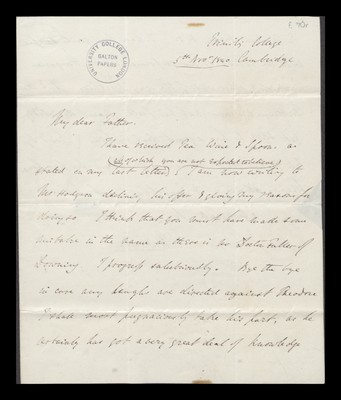 UNIVERSITY COLLEGE LONDON
GALTON PAPERS
Trinity College
5th Nov 1840 Cambridge
My dear Father.
I have received Tea Wine & Spoon. as
(all of which you are not expected to believe)
stated in my last letter, I am now writing to
Mr Hodgson declining his offer & giving my reasons for
doing so I think that you must have made some
mistake in the name as there is no Foster Fellow of
Downing I progress salubriously. Bye the bye
in case any laughs are directed against Theodore
I shall most pugnaciously take his part, as he
certainly has got a very great deal of knowledge